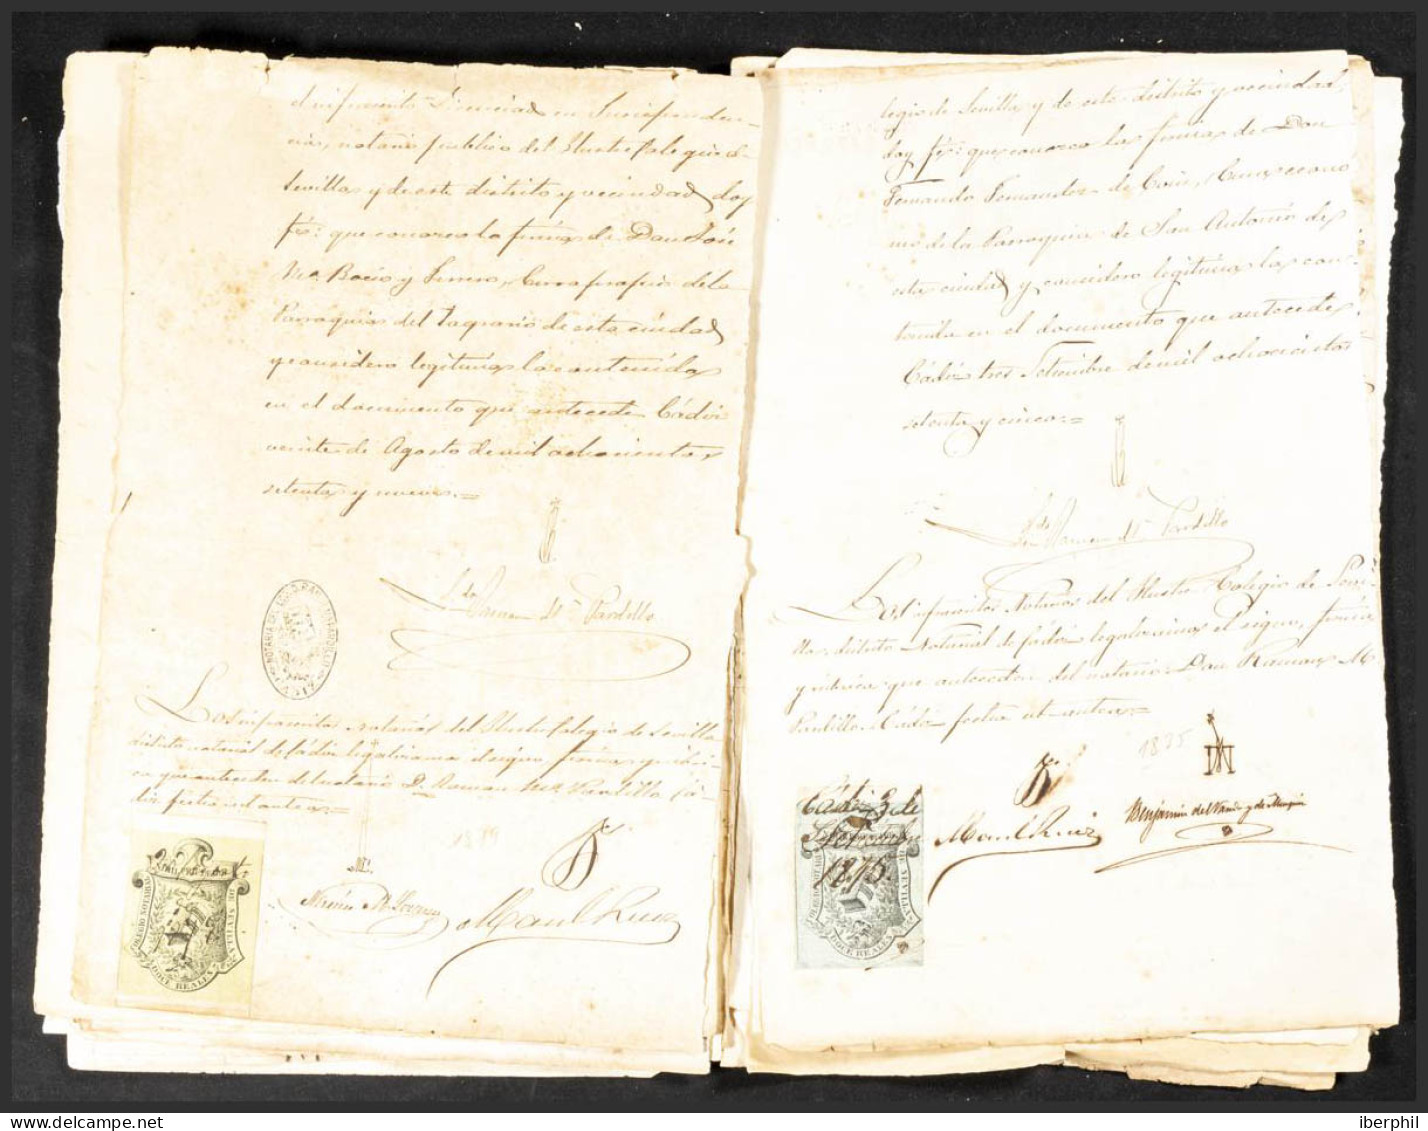 el infrascrito Licenciado en Jurispruden-
cia, notario publico del Ilustre Colegio de
Sevilla y de este distrito y vecindad doy
fé: que conozco la firma de Don José
Mª Bocio y Ferrero, Cura propio de la
Parroquia del Sagrario de esta ciudad
y considero legitima la contenida
en el documento que antecede Cádiz
veinte de Agosto de mil ochocientos
setenta y nueve.=
Ldo Ramon Mª Pardillo
NOTARIA DEL
CADIZ
Los infrascritos notarios del Ilustre Colegio de Sevilla
distrito notarial de Cádiz legalizamos el signo, firma y rúbri-
ca que anteceden del notario D. Ramon Mª Pardillo Cá-
diz fecha ut antea=
1879
Manl Ruiz
COLEGIO NOTARIAL
DE SEVILLA
DOCE REALES
legio de Sevilla y de este distrito y vecindad,
doy fé: que conozco la firma de Don
Fernando Fernandez de Cucu econo
mo de la Parroquia de San Antonio de
esta ciudad y considero legitima la con-
tenida en el documento que antecede
Cádiz tres Setiembre de mil ochocientos
setenta y cinco=
Ldo Ramon Mª Pardillo
Los infrascritos Notarios del Ilustre Colegio de Sevi-
lla, distrito Notarial de Cádiz legalizamos el signo, firma
y rúbrica que anteceden del notario Don Ramon M
Pardillo. Cádiz fecha ut antea=
1835
Cádiz 3 de
Setiembre
1875.
Manl Ruiz
Benjamin del
COLEGIO NOTARIAL
DE SEVILLA
DOCE REALES
iberphil